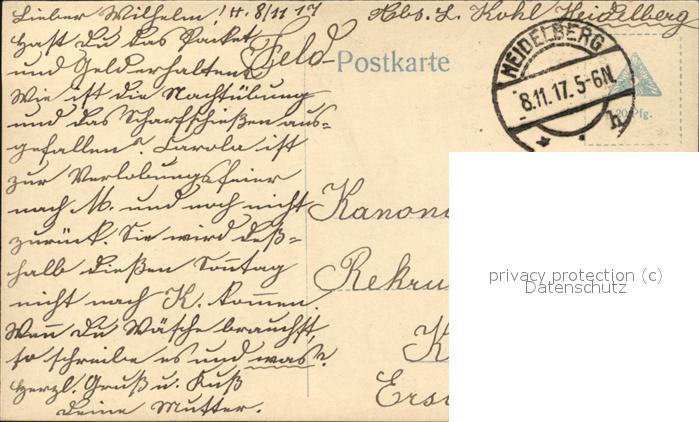 Lieber Wilhelm! H. 8/11 17
Hast Du das Packet
und Geld erhalten?
Wie ist die Nachtübung
und das Scharfschießen aus=
gefallen? Carola ist
zur Verlobungsfeier
nach M. und noch nicht
zurück. Sie wird deß=
halb dießen Sonntag
nicht nach K. kommen.
Wenn Du Wäsche brauchst,
so schreibe es und was?
Herzl. Gruß u. Kuß
Deine Mutter.
Abs. L. Kohl Heidelberg
Feld-
Postkarte
HEIDELBERG
8.11.17. 5-6N.
h
20 Pfg.
Kanon
Rekru
K
Ers
privacy protection (c)
Datenschutz